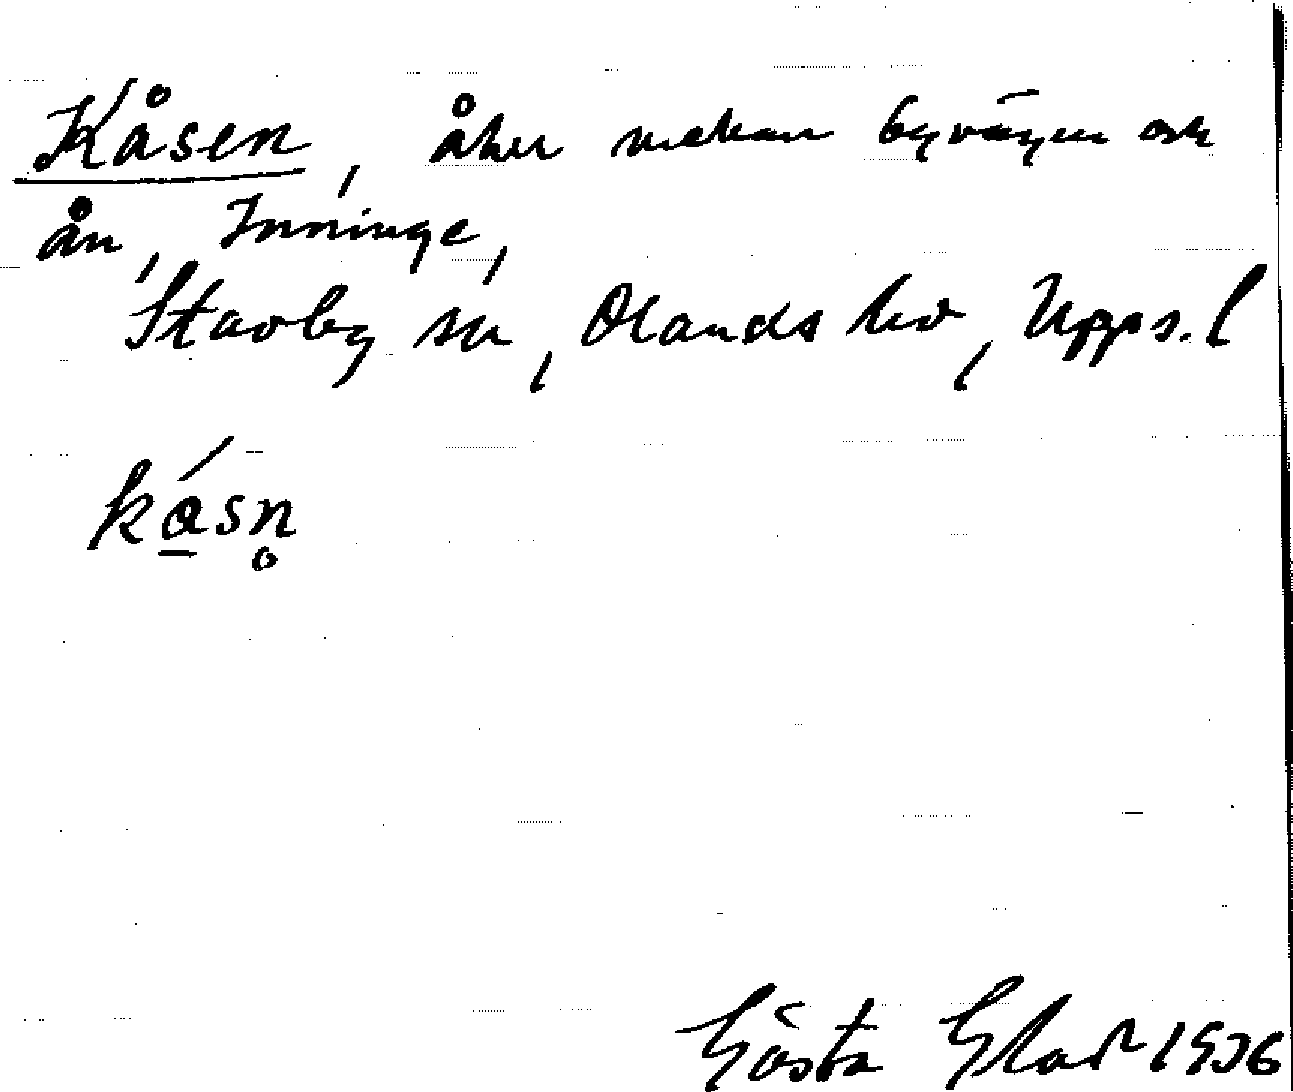 Kåsen, åker mellan byvägen och
ån, Inninge,
Stavby sn, Olands hd, Upps. l
kåsn̥
Gösta 1936